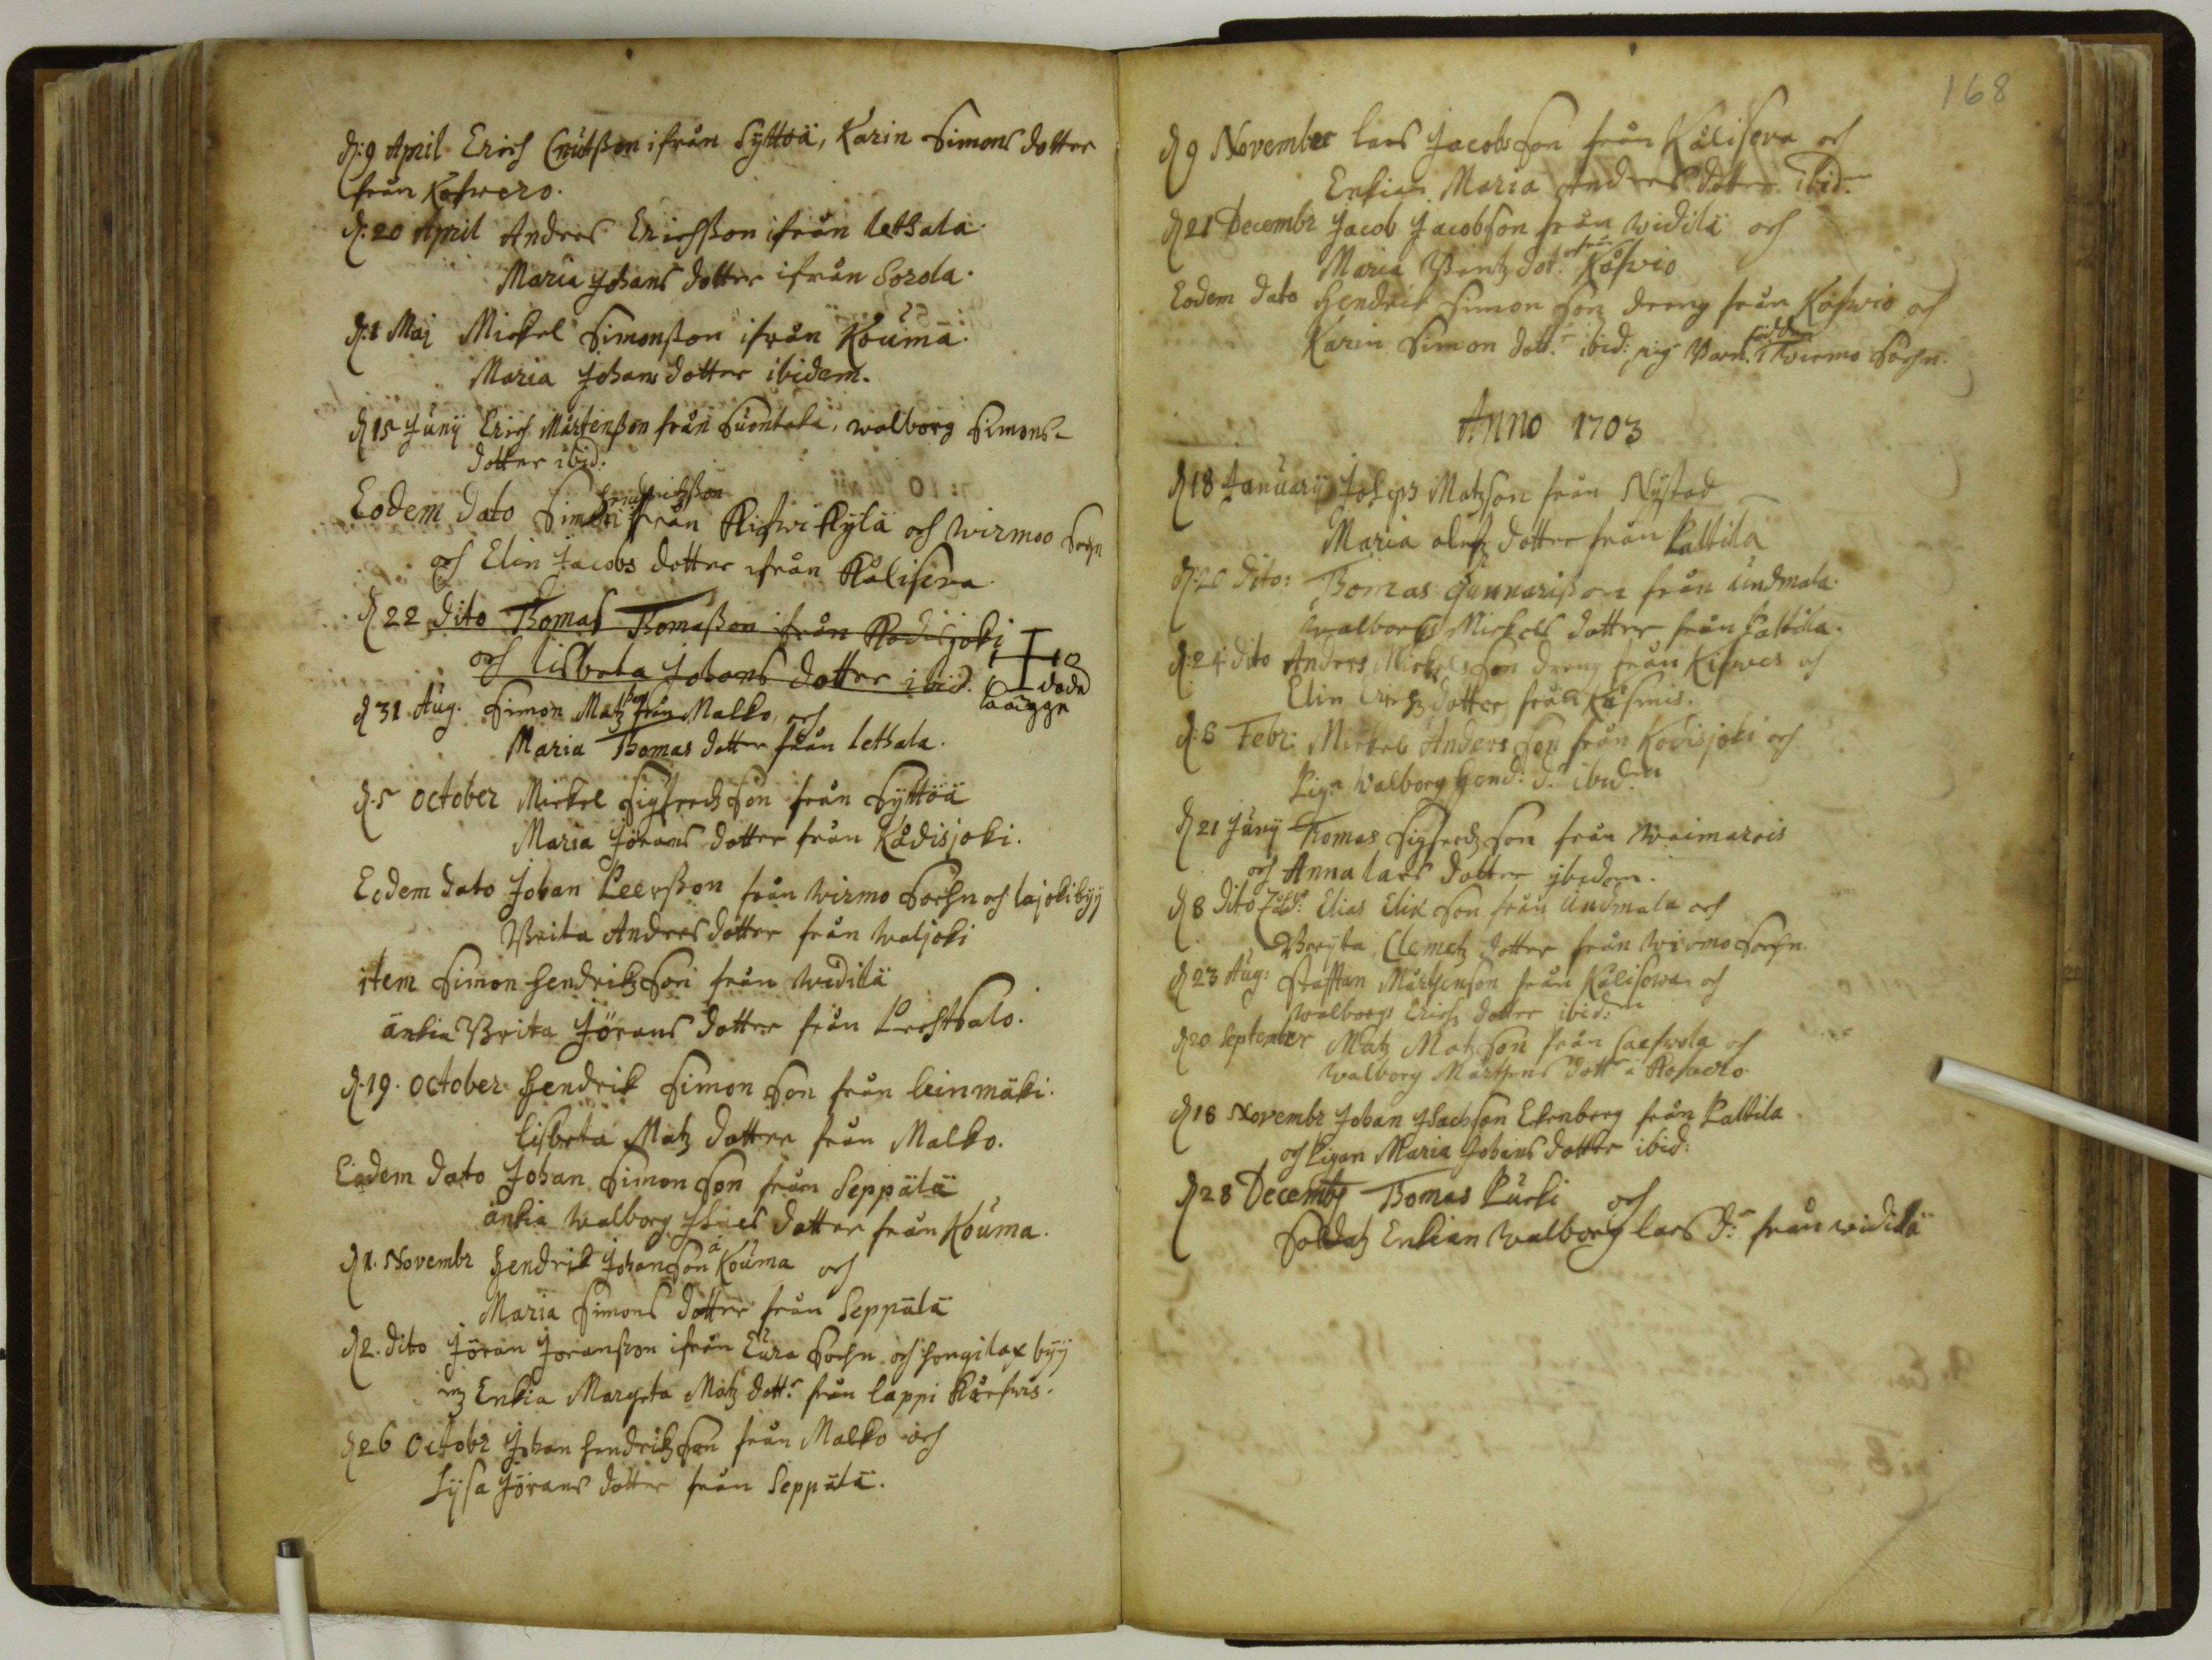 d: 9 April Erich Cnutßon ifrån Syttöä, Karin Simons dotter
från Kofwero.
d: 20 April Andres Erichßon ifrån letsala.
Maria Johans dotter ifrån Sorola.
d: 1 Maj Mickel Simonßon ifrån Kouma.
Maria Johans dotter ibidem.
d 15 Juny Erich Mårtenßon från Suontaka, walborg Simons-
dotter ibid:
Hendrichßon
Eodem dato Simon ifrån Kifwikylä och Wirmoo Sochn
och Elin Jacobs dotter ifrån Kålisera.
d 22 dito Thomas Thomaßon ifrån Kodisjoki
och lisbeta Johans dotter ibid.
bägge döda
son
d 31 Aug. Simon Matz från Malko, och
Maria Thomas dotter från letsala.
d. 5 October Mickel Sigfredz Son från Syttöä
Maria Jörans dotter från Kådisjoki.
Eodem dato Johan Peerßon från Wirmo Sochn och lajoki byy
Brita Andres dotter från waljoki
item Simon Hendrikz Son från Widilä
änkia Brita Jörans dotter från Lechtsalo.
d. 19. October Hendrik Simon Son från leinmäki.
lisbeta Matz dotter från Malko.
Eodem dato Johan Simon Son från Seppälä
änkia Walborg Isacs dotter från Kouma.
d 1. Novembr Hendrik Johan Son å Kouma och
Maria Simons dotter från Seppälä
d 2. dito Jöran Joranßon ifrån Eura Sochn och Hongilax byy
Enkia Margeta Matz dott:r från lappi
d 26 Octobr Johan Hendrikz Son från Malko och
Lysa Jörans dotter från Seppälä.
168
d 9 November lars Jacobs Son från Kålisera och
Enkian Maria Andres dotter ibid:m
d 21 Decembr Jacob Jacobson från Widilä och
Maria Bentz dot:r från Kåfwio
Eodem dato Hendrik Simon Son dreng från Kåfwio och
Karin Simon dott:r ibid: född i Wirmo Sochn.
Anno 1703
d 18 January Joseps Matzson från Nystad
Maria olofz dotter från Kattila
d: 20 dito: Thomas Gunnarißon från Undmala.
Walborgs Mickels dotter från Kattila.
d: 24 dito Anders Mickels Son dreng från Kifwes och
Elin Erichz dotter från
d: 8 Febr: Mickel Anders Son från Kodisjoki och
Pig:n Walborg Hend: d:r ibid:m
d 21 Juny Thomas Sigfredz Son från Waimarois
och Anna lars dotter ybidem.
d 8 dito Elias Elix Son från Undmala och
Breyta Clemetz dotter från Wirmo Sochn.
d 23 Aug: Staffan Mårthenson från Kålisowa och
Walborgs Erichs dotter ibid:m
d 20 September Matz Matz Son från och
Walborg Mårthens dott:r å Kofwero
d 18 Novembr Johan Isacsson Ekenberg från Kattila
och Pigan Maria Johans dotter ibid:
d 28 Decembr Thomas Kurki och
Soldatz Enkian Walborg lars d:r från widilä